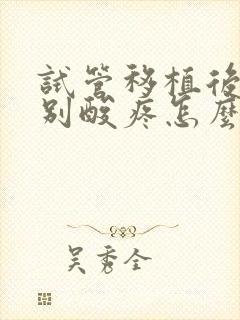 試管移植後
別酸疼怎麼
吳秀全